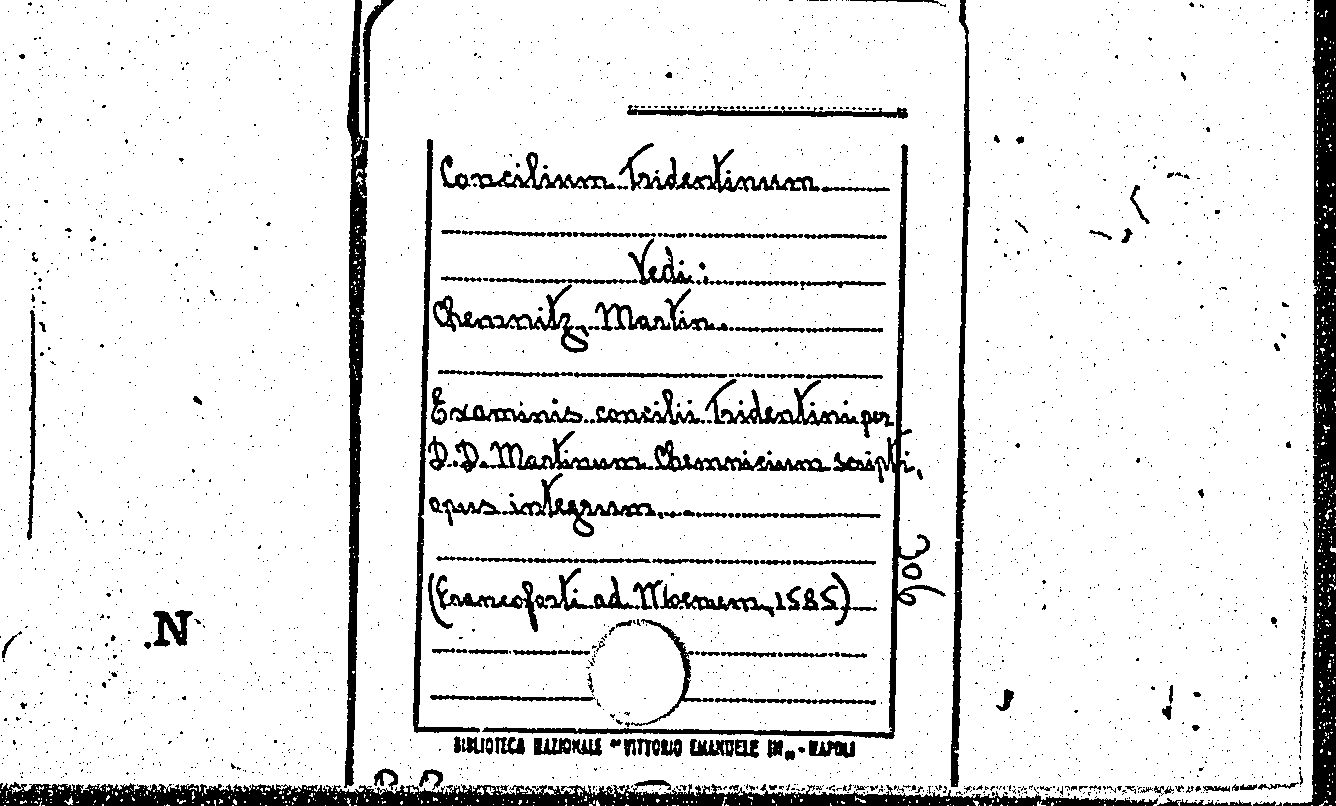 Concilium Tridentinum
Vedi:
Chemnitz, Martin.
Examinis concilii Tridentini per
D.D. Martinum Chemnicium scripti,
opus integrum.
(Francoforti ad Moenum, 1585)
BIBLIOTECA NAZIONALE "VITTORIO EMANUELE III" - NAPOLI
.N